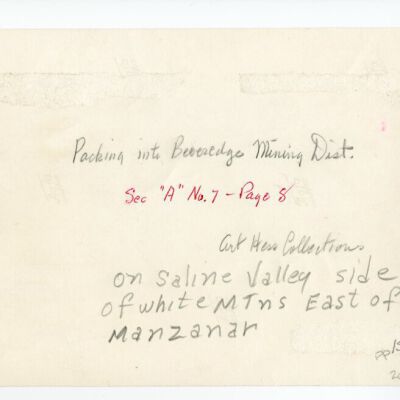 Packing into Beveredge Mining Dist.
Sec "A" No. 7 - Page 8
Art Hess Collections
on Saline Valley side
of white MTns East of
Manzanar